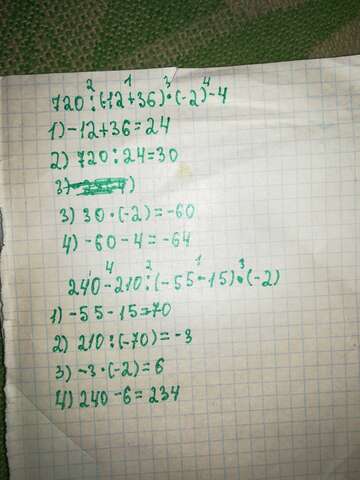 2 1 3 4
720:(-12+36)·(-2)-4
1)-12+36=24
2) 720:24=30
3)
3) 30·(-2)=-60
4) -60-4=-64
4 2 1 3
240-210:(-55-15)·(-2)
1)-55-15=70
2) 210:(-70)=-3
3) -3·(-2)=6
4) 240-6=234